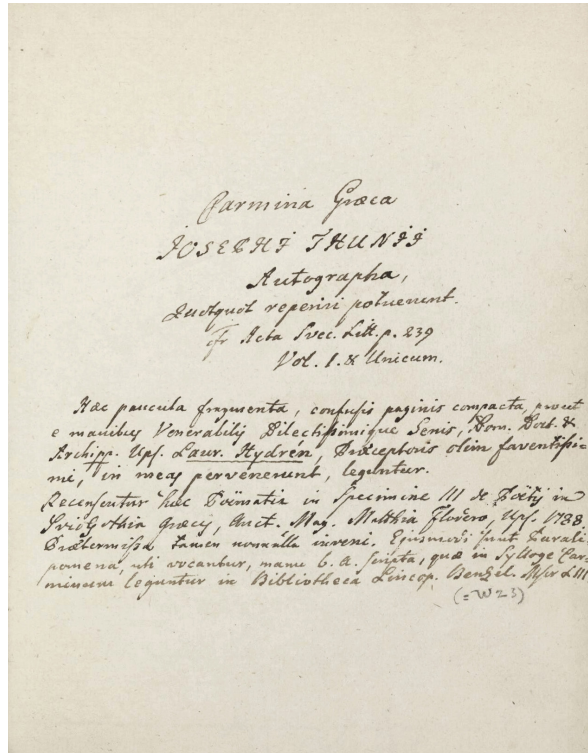 Carmina Græca
JOSEPHI THUNII
Autographa,
Quotquot reperiri potuerunt.
Acta Svec. Litt. p. 239
Vol. 1. & Unicum.
Hæc paucula fragmenta, confusis paginis compacta, prout
e manibus Venerabilis Dilectissimique Senis, Dom. Doct. &
Archipp. Ups. Laur. Hydrén, Præceptoris olim faventissi-
mi, in meas pervenerunt, leguntur.
Recensentur hæc Poëmatia in Specimine III de Poëtis in
SvioGothia Græcis, Auct. Mag. Matthia Florero, Ups. 1738
Prætermissa tamen nonnulla inveni. Ejusmodi sunt Parali
pomena, uti vocantur, manu servata, quæ in Sylloge Car-
minum leguntur in Bibliotheca Lincop. Benzel. Mscr LIII
(=W23)